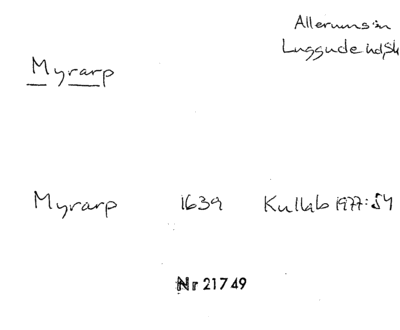 Allerums sn
Luggude hd, Sk
Myrarp
Myrarp 1639 Kullab 1977:54
Nr 21749